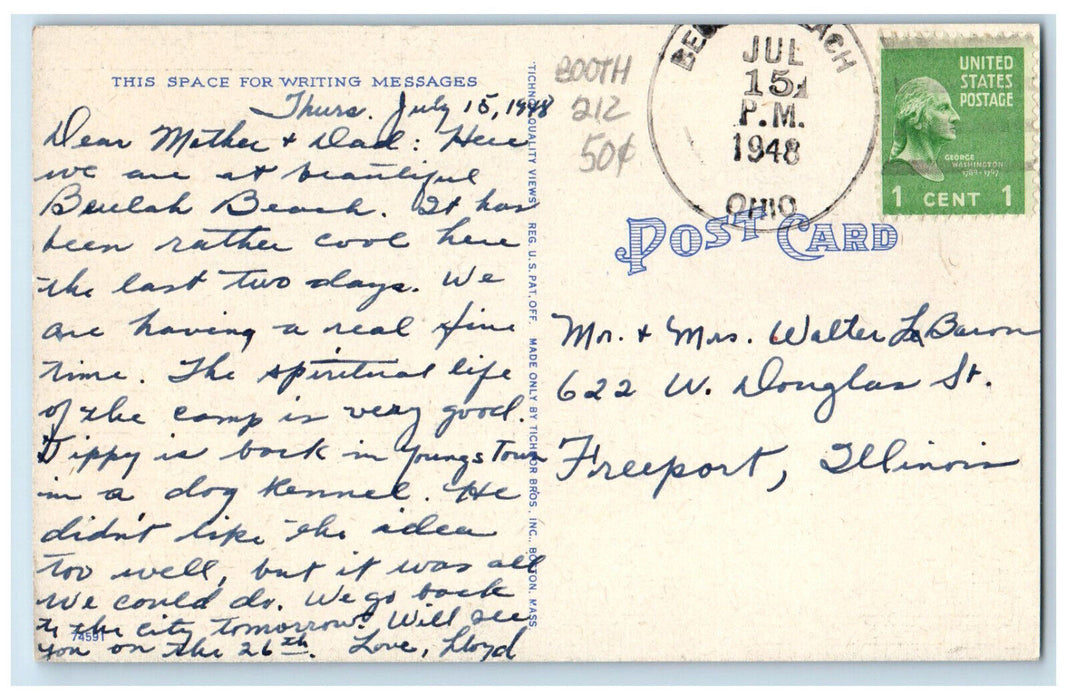 THIS SPACE FOR WRITING MESSAGES
Thurs. July 15, 1948
Dear Mother + Dad: Here
we are at beautiful
Beulah Beach. It has
been rather cool here
the last two days. We
are having a real fine
time. The spiritual life
of the camp is very good.
Dippy is back in Youngstown
in a dog kennel. He
didn't like the idea
too well, but it was all
we could do. We go back
to the city tomorrow. Will see
you on the 26th. Love, Lloyd
74591
"TICHNOR QUALITY VIEWS" REG. U.S. PAT. OFF. MADE ONLY BY TICHNOR BROS. INC., BOSTON, MASS.
BOOTH
212
50¢
BEULAH BEACH
JUL
15
P.M.
1948
OHIO
UNITED
STATES
POSTAGE
GEORGE
WASHINGTON
1789-1797
1 CENT 1
POST CARD
Mr. + Mrs. Walter LaBaron
622 W. Douglas St.
Freeport, Illinois